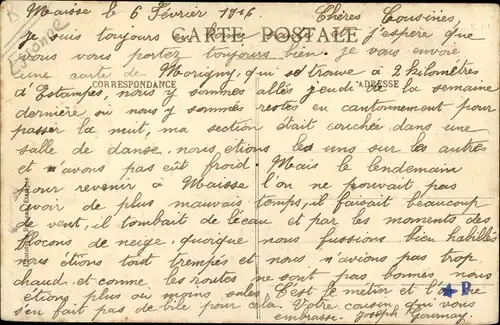 Maisse le 6 Février 1916 Chères Cousines,
je suis toujours en bonne j'espère que
CARTE POSTALE
vous vous portez toujours bien. je vous envoie
une carte de Morigny, qui se trouve à 2 kilomètres
CORRESPONDANCE ADRESSE
d'Estampes, nous y sommes allés jeudi de la semaine
dernière où nous y sommes restés en cantonnement pour
passer la nuit, ma section était couchée dans une
salle de danse. nous étions les uns sur les autres
et n'avons pas eût froid. Mais le lendemain
pour revenir à Maisse l'on ne pouvait pas
avoir de plus mauvais temps, il faisait beaucoup
de vent, il tombait de l'eau et par les moments des
flocons de neige. quoique nous fussions bien habillés
nous étions tout trempés et nous n'avions pas trop
chaud. et comme les routes ne sont pas bonnes nous
étions plus ou moins sales. C'est le métier et l'on ne
s'en fait pas de bile pour cela. Votre cousin qui vous
embrasse. Joseph
Essonne
D
★ P